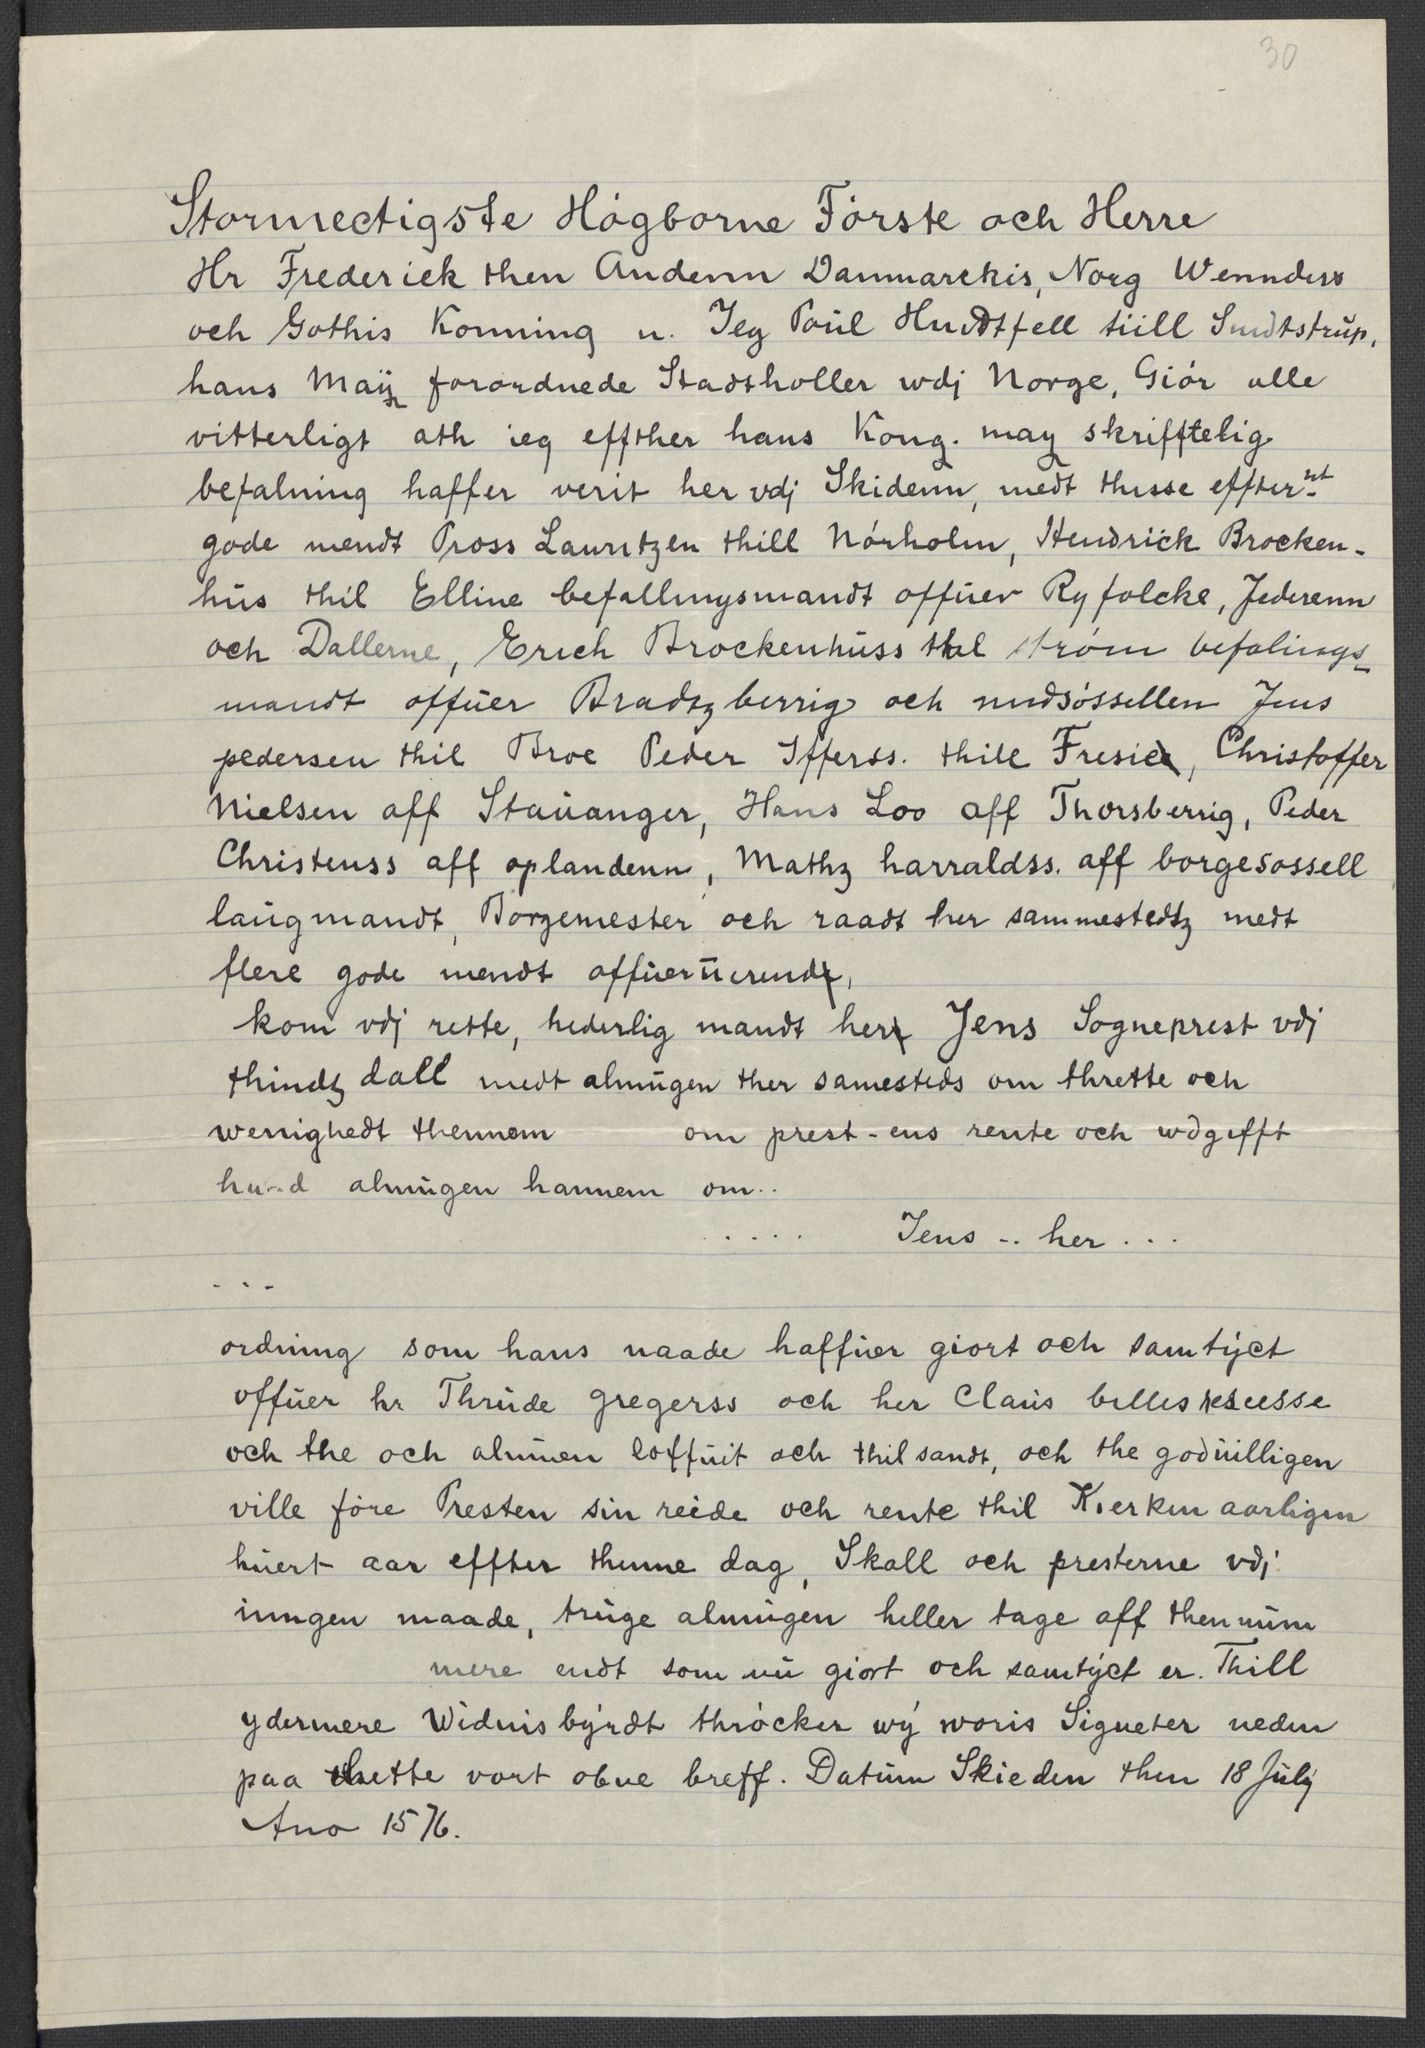 30
Stormectigste Högborne Förste och Herre
Hr Frederick then Andenn Danmarckis, Norg Wennders
och Gothis Konning u. Jeg Poŭl Hŭidtfell till Smdtstrŭp,
hans Maÿ forordnede Stadtholler wdj Norge, Giör alle
vitterligt ath ieg effther hans Kong. may skrifftelig
befalning haffer verit her vdj Skidenn, medt thisse effternt
gode mendt Pross Lauritzen thill Nörholm, Hendrick Brocken-
hŭs thil Elline befallingsmandt offŭer Ryfolcke, Jederenn
och Dallerne, Erich Brockenhŭss thil ström befalings-
mandt offŭer Bradtzberrig och nŭdsössellen Jens
pedersen thil Broe Peder Ifferss. thill Fresie, Christoffer
Nielsen aff Staŭanger, Hans Loo aff Thorsberrig, Peder
Christenss aff oplandenn, Mathz harraldss. aff borgesossell
laŭgmandt, Borgemester och raadt her sammestedtz medt
flere gode mendt offŭerŭerendt,
kom vdj rette, hederlig mandt her Jens Sogneprest vdj
thindtz dall medt almŭgen ther samesteds om thrette och
wenighedt thennem om prest-ens rente och wdgifft
hu..d almŭgen hannem om..
..... Jens .. her ...
...
ordning som hans naade haffŭer giort och samtÿct
offŭer hr Thrŭde gregerss och her Claŭs billes
och the och almŭen loffŭit och thil sandt, och the godŭilligen
ville före Presten sin reide och rente thil Kierken aarligen
hŭert aar effter thenne dag, Skall och presterne vdj
inngen maade, trŭge almŭgen heller tage aff thennŭm
mere endt som nŭ giort och samtÿct er. Thill
ydermere Widnisbÿrdt thröcker wÿ woris Signeter neden
paa thette vort obne breff. Datŭm Skieden then 18 Jŭlÿ
Ano 1576.